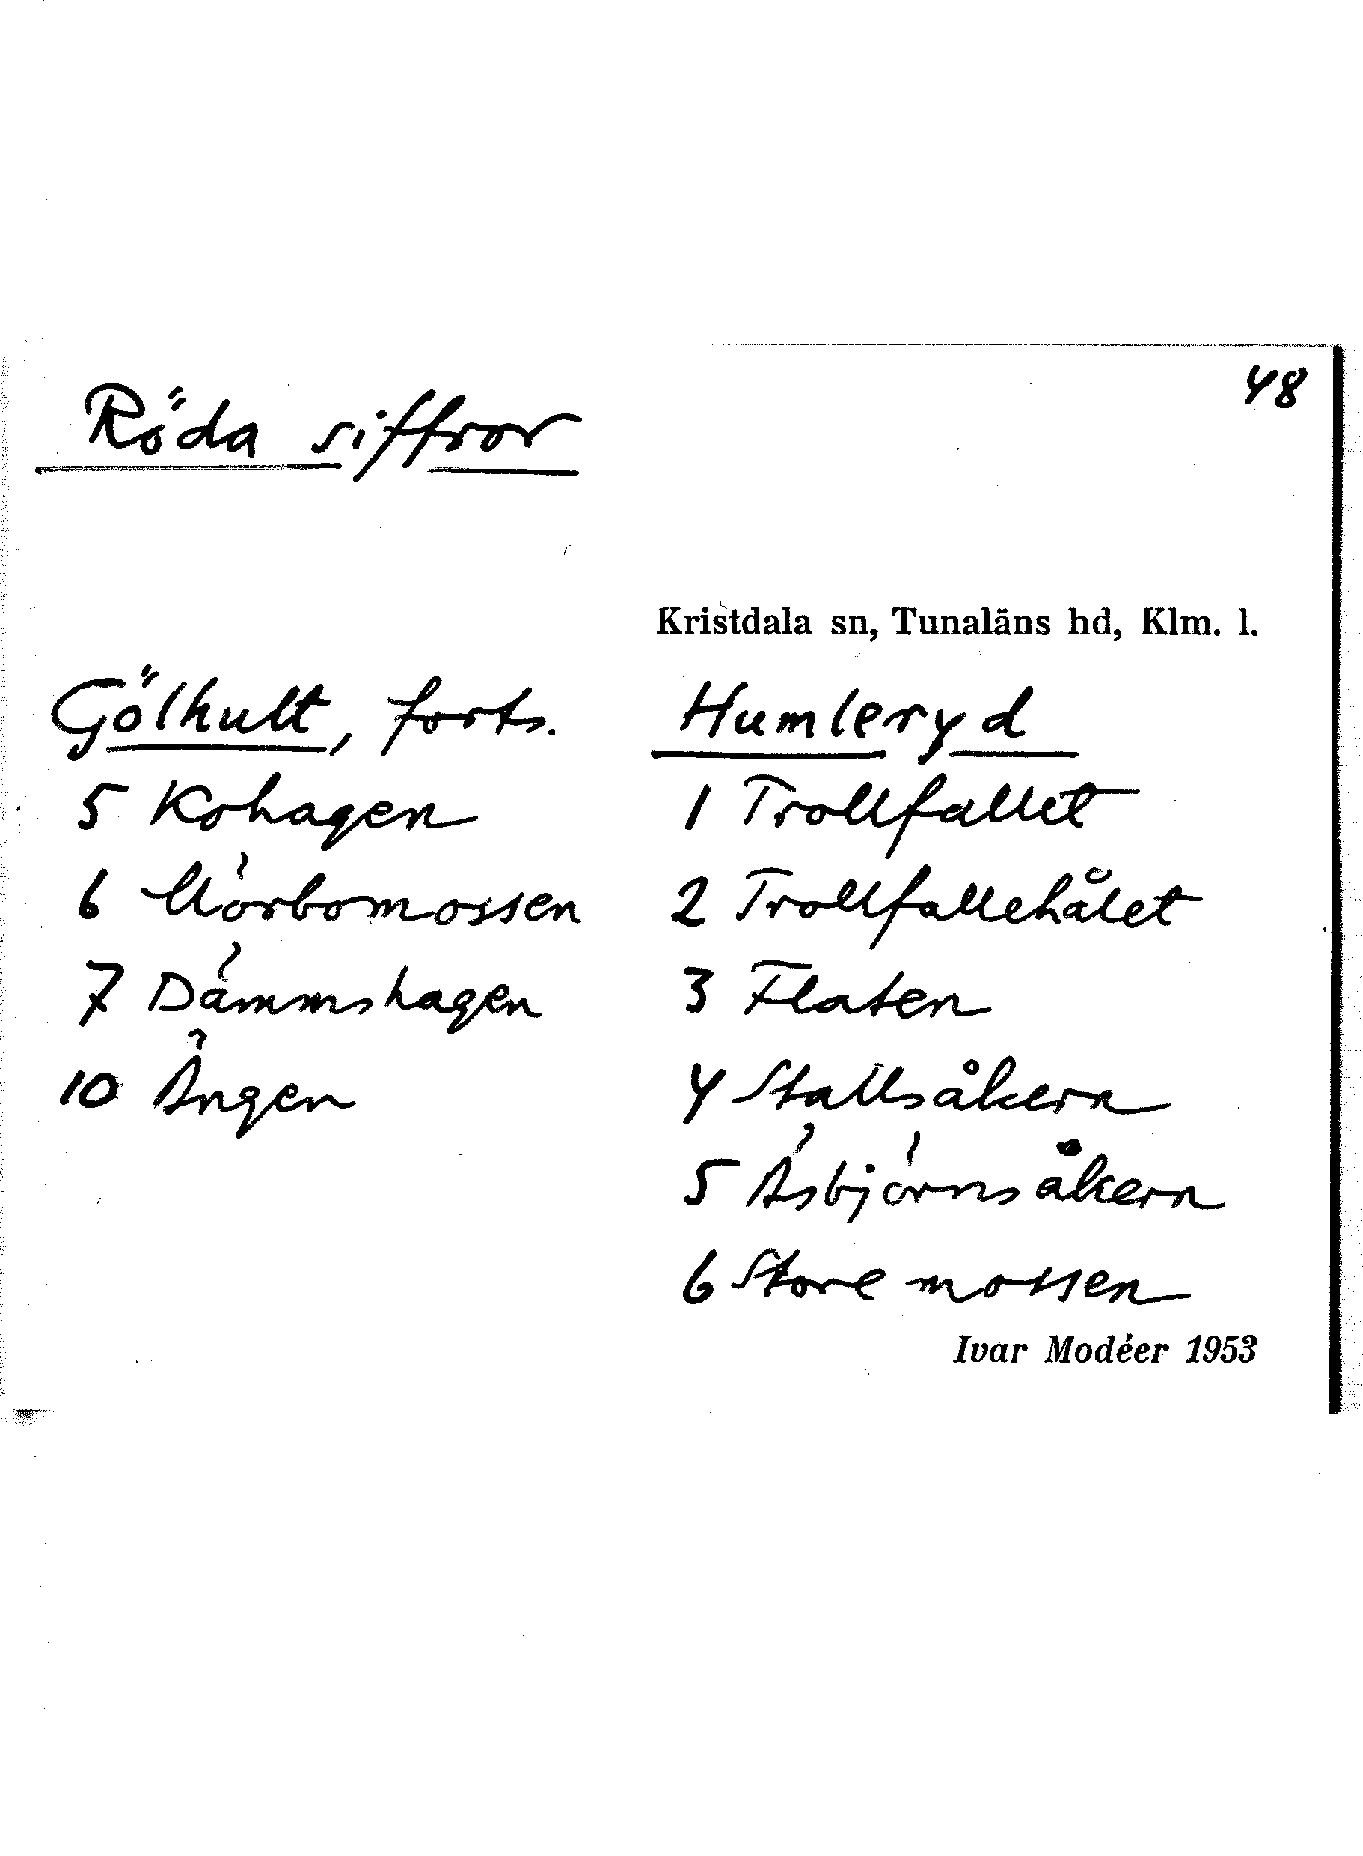 48
Röda siffror
Kristdala sn, Tunaläns hd, Klm. l.
Gölhult, forts.
5 Kohagen
6 Mörbomossen
7 Dämmshagen
10 Ängen
Humleryd
1 Trollfallet
2 Trollfallehålet
3 Flaten
4 Stallsåkern
5 Äsbjörnsåkern
6 Store mossen
Ivar Modéer 1953